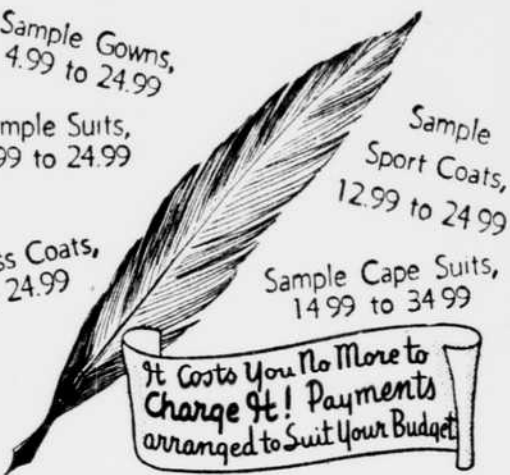 Sample Gowns,
4.99 to 24.99
mple Suits,
99 to 24.99
ss Coats,
24.99
Sample
Sport Coats,
12.99 to 24 99
Sample Cape Suits,
14 99 to 34 99
It Costs You No More to
Charge It! Payments
arranged to Suit Your Budget